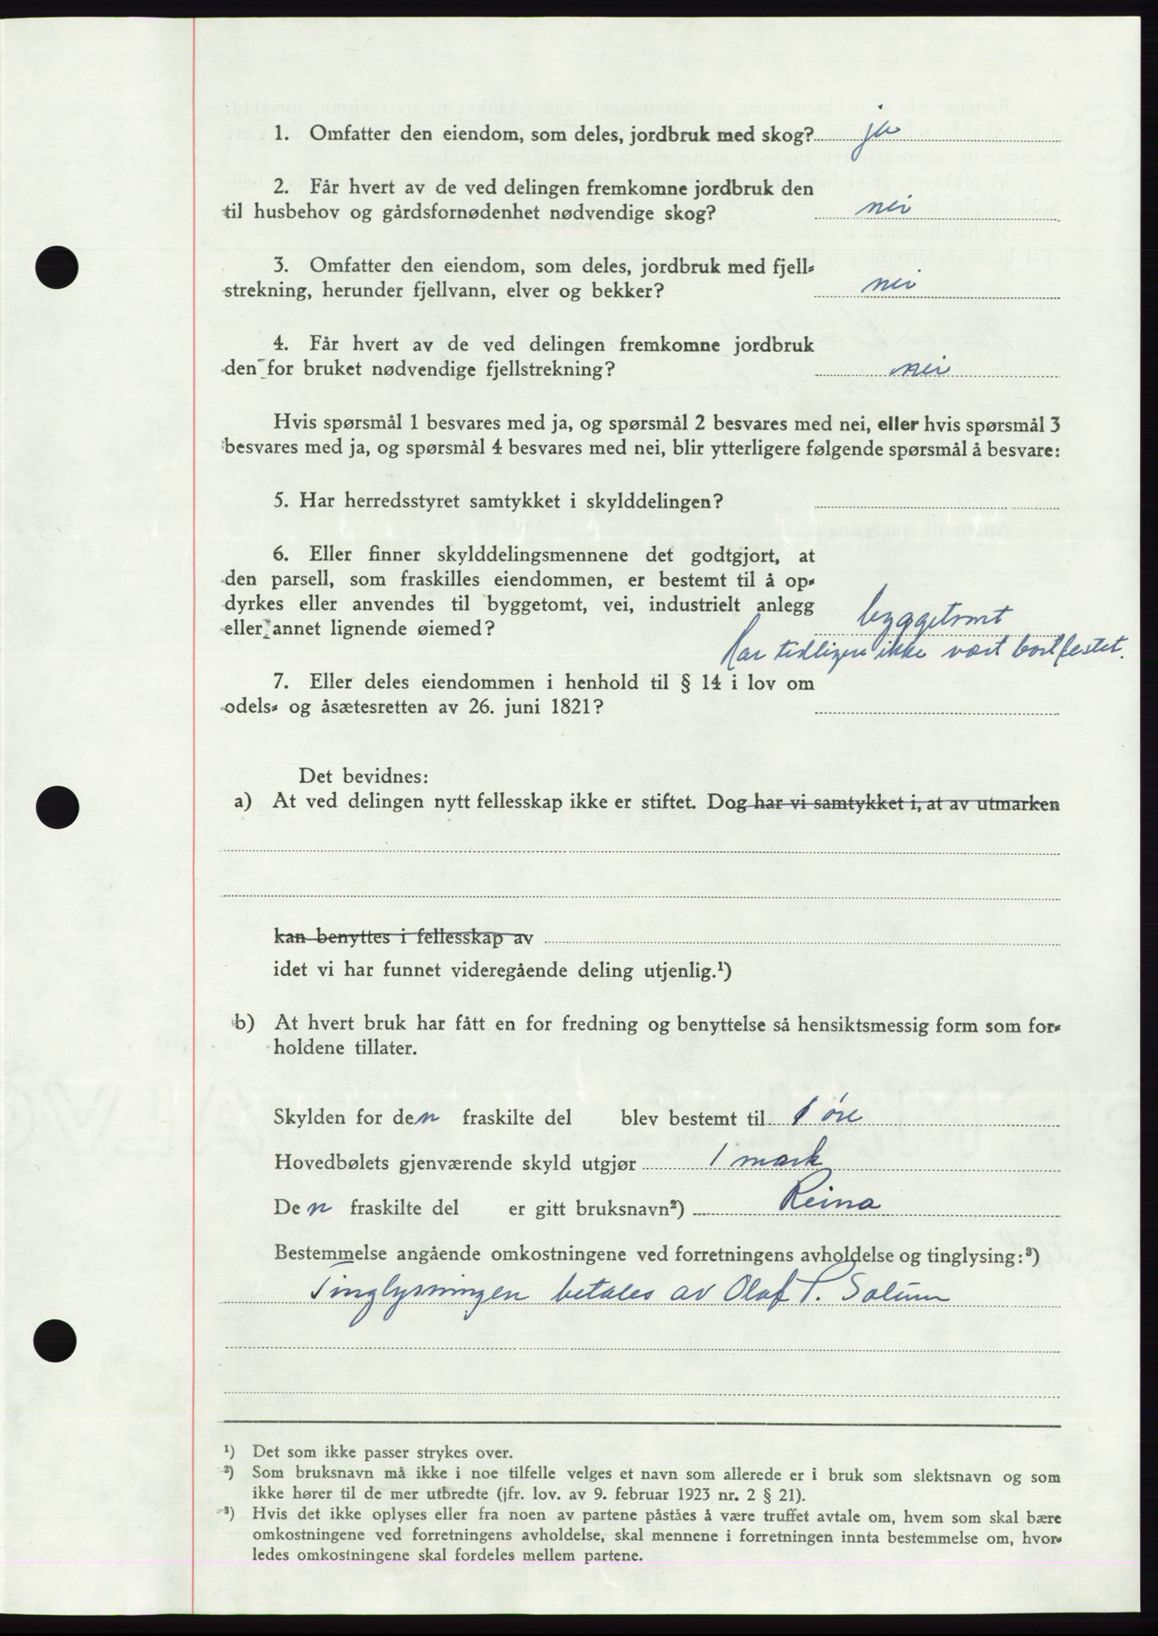 1. Omfatter den eiendom, som deles, jordbruk med skog? ja
2. Får hvert av de ved delingen fremkomne jordbruk den
til husbehov og gårdsfornødenhet nødvendige skog? nei
3. Omfatter den eiendom, som deles, jordbruk med fjell-
strekning, herunder fjellvann, elver og bekker? nei
4. Får hvert av de ved delingen fremkomne jordbruk
den for bruket nødvendige fjellstrekning? nei
Hvis spørsmål 1 besvares med ja, og spørsmål 2 besvares med nei, eller hvis spørsmål 3
besvares med ja, og spørsmål 4 besvares med nei, blir ytterligere følgende spørsmål å besvare:
5. Har herredsstyret samtykket i skylddelingen?
6. Eller finner skylddelingsmennene det godtgjort, at
den parsell, som fraskilles eiendommen, er bestemt til å op-
dyrkes eller anvendes til byggetomt, vei, industrielt anlegg
eller annet lignende øiemed? byggetomt
Har tidligere ikke vært bortfestet.
7. Eller deles eiendommen i henhold til § 14 i lov om
odels- og åsætesretten av 26. juni 1821?
Det bevidnes:
a) At ved delingen nytt fellesskap ikke er stiftet. Dog har vi samtykket i, at av utmarken
kan benyttes i fellesskap av
idet vi har funnet videregående deling utjenlig.¹)
b) At hvert bruk har fått en for fredning og benyttelse så hensiktsmessig form som for-
holdene tillater.
Skylden for den fraskilte del blev bestemt til 1 øre
Hovedbølets gjenværende skyld utgjør 1 mark
Den fraskilte del er gitt bruksnavn²) Reina
Bestemmelse angående omkostningene ved forretningens avholdelse og tinglysing:³)
Tinglysningen betales av Olaf P. Solum
¹) Det som ikke passer strykes over.
²) Som bruksnavn må ikke i noe tilfelle velges et navn som allerede er i bruk som slektsnavn og som
ikke hører til de mer utbredte (jfr. lov. av 9. februar 1923 nr. 2 § 21).
³) Hvis det ikke oplyses eller fra noen av partene påståes å være truffet avtale om, hvem som skal bære
omkostningene ved forretningens avholdelse, skal mennene i forretningen innta bestemmelse om, hvor-
ledes omkostningene skal fordeles mellem partene.